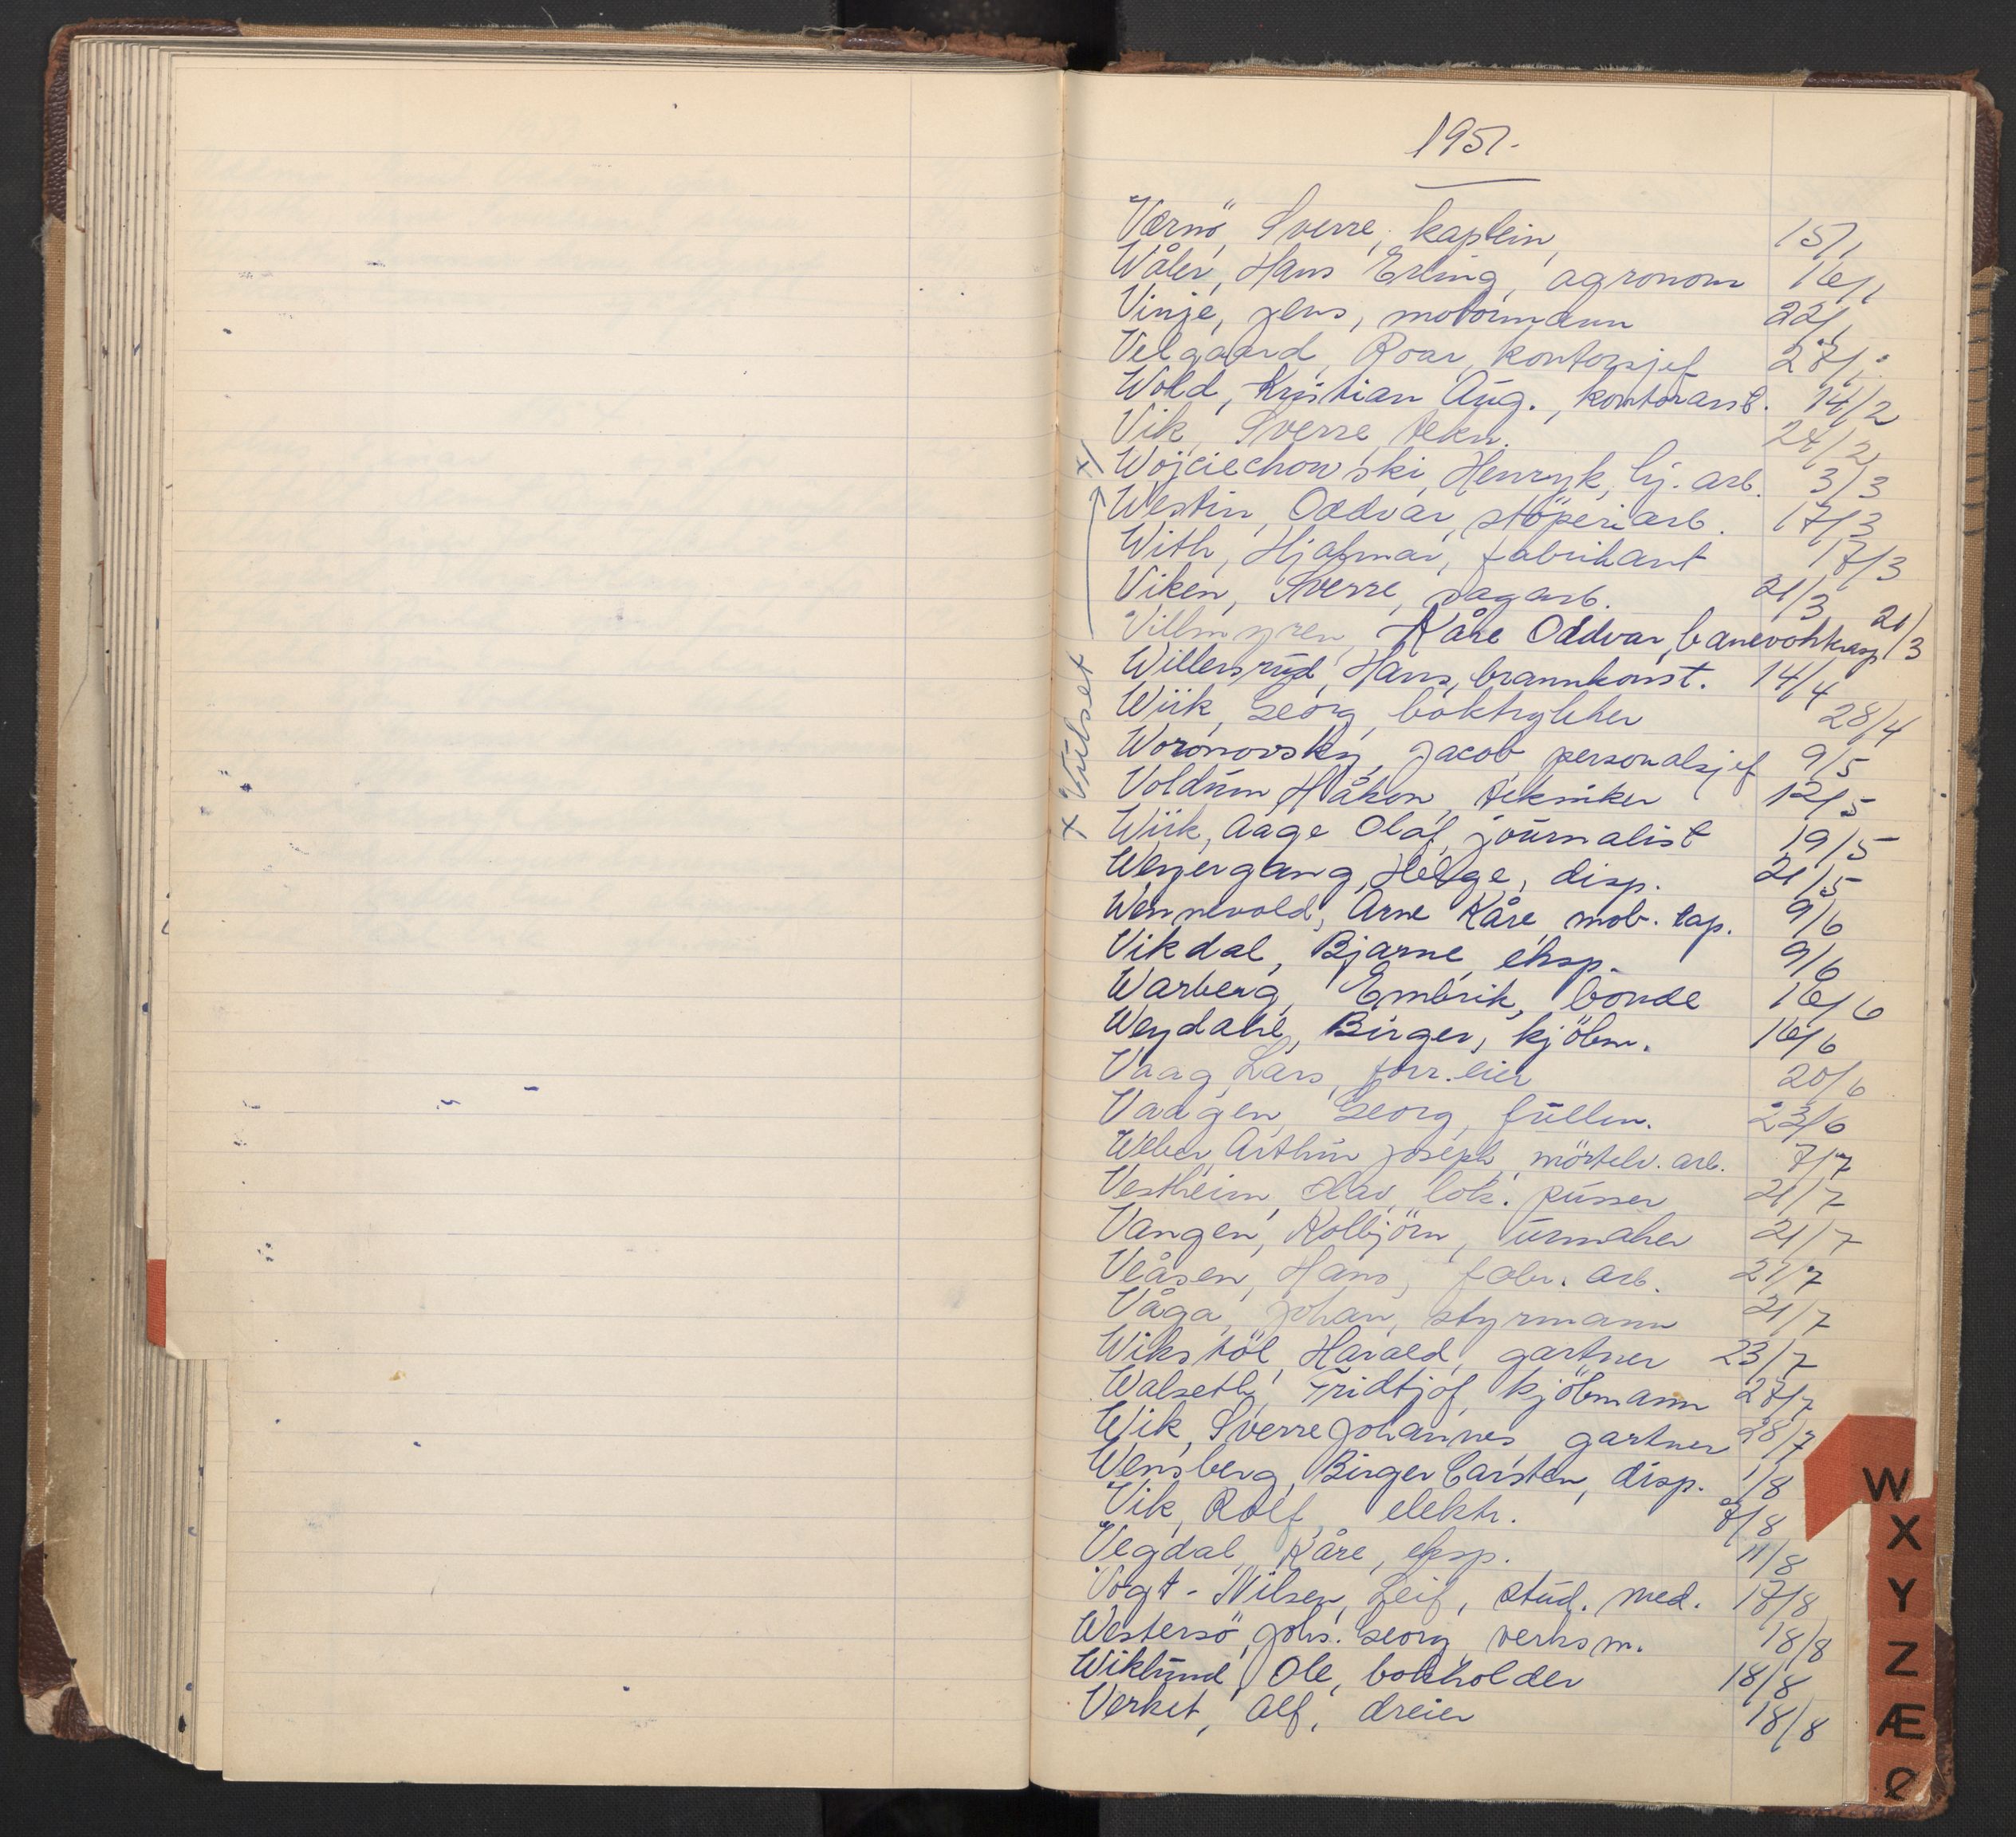 1951.
Værnö, Sverre, kaptein, 15/1
Wåler, Hans Erling, agronom 16/1
Vinje, Jens, motormann 22/1
Velgaard, Roar, kontorsjef 27/1
Wold, Kristian Aug., kontorass. 14/2
Vik, Sverre, tekn. 24/2
x/ Wojciechowski, Henryk, hj. arb. 3/3
Westin, Oddvar, støperiarb. 17/3
With, Hjalmar, fabrikant 17/3
Viken, Sverre, sagarb. 21/3
Villmyren, Kåre Oddvar, banevokterasp 21/3
Willersrud, Hans, brannkonst. 14/4
x Vilset
Wiik, Georg, boktrykker 28/4
Woronovsky, Jacob personalsjef 9/5
Voldum Håkon, tekniker 12/5
Wiik, Aage Olaf, journalist 19/5
Weyergang, Helge, disp. 21/5
Wennevold, Arne Kåre, mob. tap. 9/6
Vikdal, Bjarne, eksp. 9/6
Warberg, Embrik, bonde 16/6
Weydahl, Birger, kjöbm. 16/6
Vaag, Lars, forr. eier 20/6
Vaagen, Georg, fullm. 23/6
Weber, Arthur Joseph, mörtelv. arb. 7/7
Vestheim, Olav, lok. pusser 21/7
Vangen, Kolbjörn, urmaker 21/7
Veåsen, Hans, fabr. arb. 21/7
Våga, Johan, styrmann 21/7
Wikstöl, Harald, gartner 23/7
Walseth, Fridtjof, kjöbmann 27/7
Wik, Sverre Johannes, gartner 28/7
Wensberg, Birger Carsten, disp. 1/8
Vik, Rolf, elektr. 7/8
Vegdal, Kåre, eksp. 11/8
Vogt-Nilsen, Leif, stud. med. 17/8
Westersö, Johs. Georg verksm. 18/8
Wiklund, Ole, bokholder 18/8
Verket, Alf, dreier 18/8
W
X
Y
Z
Æ
Ø